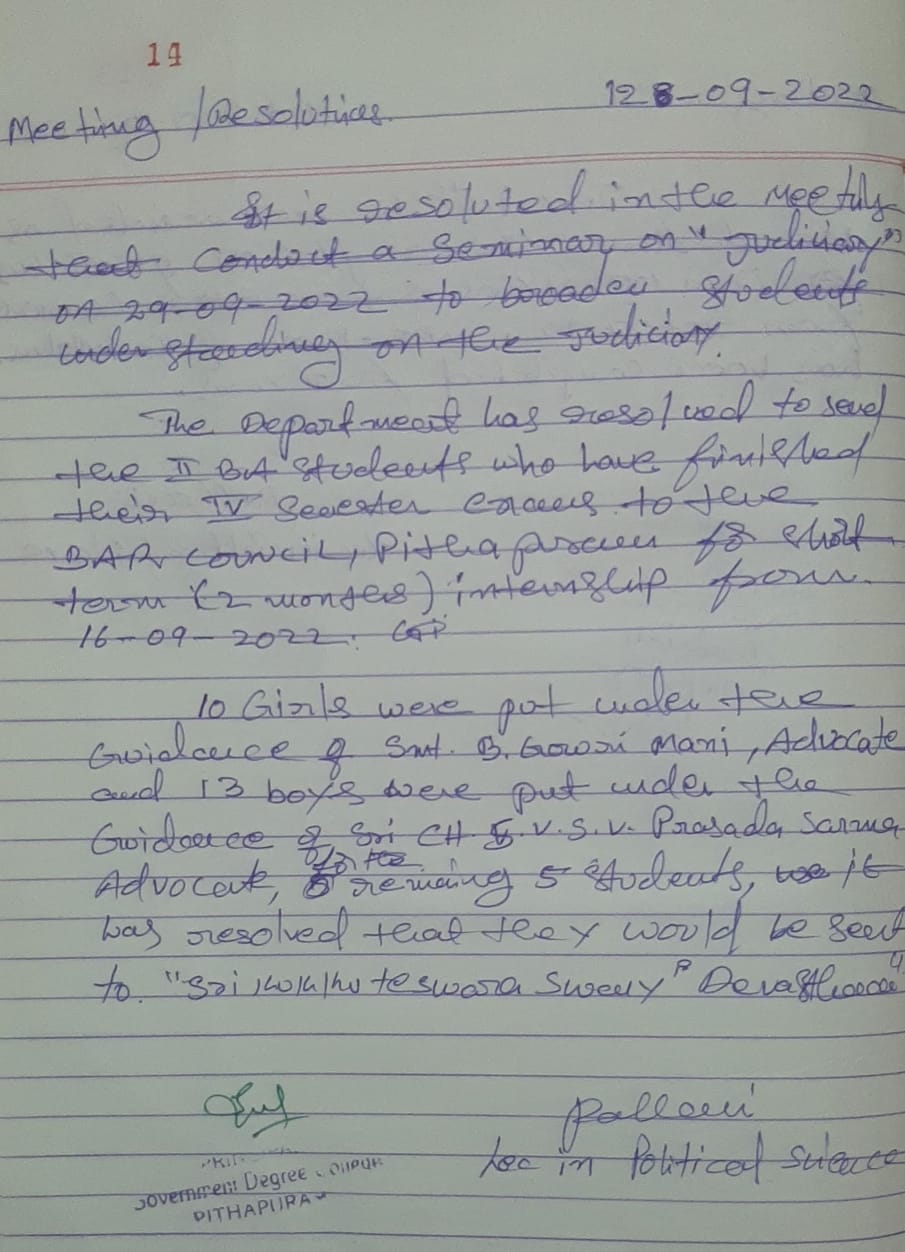 14
Meeting /Resolutions. 128-09-2022
It is resoluted in the Meeting
that Conduct a Seminar on "Judiciary"
on 29-09-2022 to broaden Students
understanding on the Judiciary.
The Department has resolved to send
the II BA Students who have finished
their IV Semester exams to the
BAR COUNCIL, Pithapuram for short
term (2 months) internship from
16-09-2022.
10 Girls were put under the
Guidance of Smt. B. Gowri Mani, Advocate
and 13 boys were put under the
Guidance of Sri CH. V.S.V. Prasada Sarma
Advocate, remaining 5 Students, it
was resolved that they would be sent
to "Sri Kukkuteswara Swamy" Devasthanam"
Pallavi
Lec in Political Science
Government Degree
PITHAPURAM